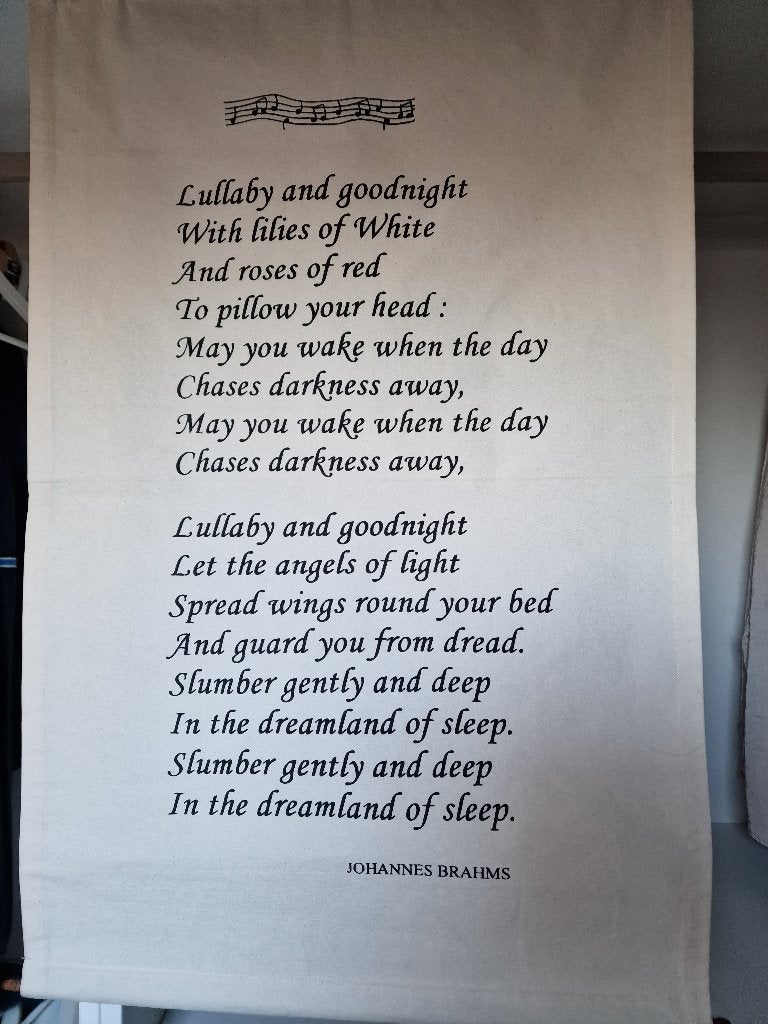 Lullaby and goodnight
With lilies of White
And roses of red
To pillow your head :
May you wake when the day
Chases darkness away,
May you wake when the day
Chases darkness away,
Lullaby and goodnight
Let the angels of light
Spread wings round your bed
And guard you from dread.
Slumber gently and deep
In the dreamland of sleep.
Slumber gently and deep
In the dreamland of sleep.
JOHANNES BRAHMS